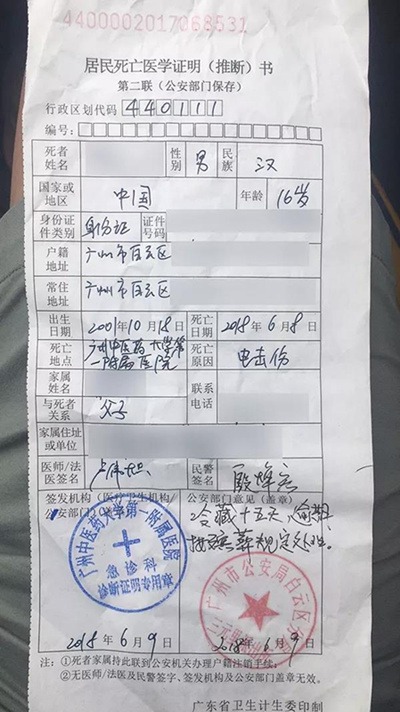 4400002017068531
居民死亡医学证明（推断）书
第二联（公安部门保存）
行政区划代码 440111
编号：
死者姓名 性别 男 民族 汉
国家或地区 中国 年龄 16岁
身份证件类别 身份证 证件号码
户籍地址 广州市白云区
常住地址 广州市白云区
出生日期 2001年10月18日 死亡日期 2018年6月8日
死亡地点 广州中医药大学第一附属医院 死亡原因 电击伤
家属姓名 联系电话
与死者关系 父子
家属住址或单位
医师/法医签名 民警签名
签发机构（医疗卫生机构/公安部门）盖章 公安部门意见（盖章）
冷藏十五天，逾期
按殡葬规定处理。
广州中医药大学第一附属医院
急诊科
诊断证明专用章
广州市公安局白云区分局
2018年6月9日 2018年6月9日
注：①死者家属持此联到公安机关办理户籍注销手续；
②无医师/法医及民警签字、签发机构及公安部门盖章无效。
广东省卫生计生委印制